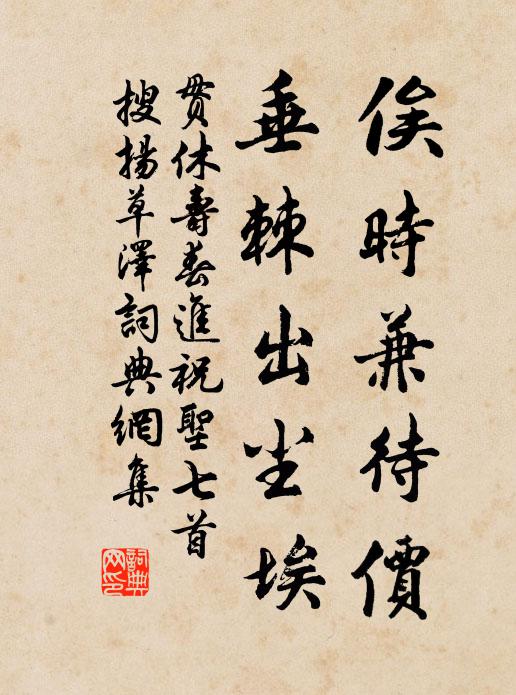 俟時兼待價
垂棘出尘埃
貫休壽春進祝聖七首
搜揚草澤詞典網集
詞典网印